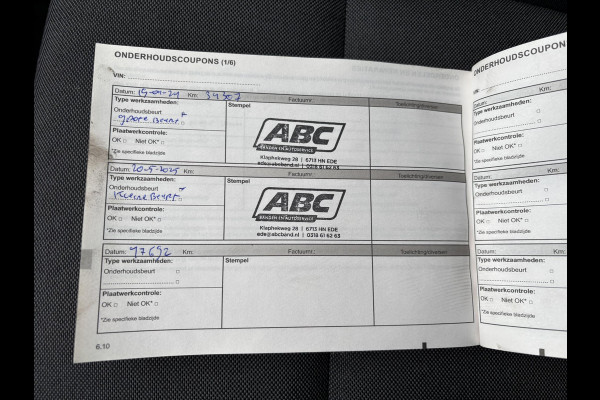 ONDERHOUDSCOUPONS (1/6)
VIN:
Datum: Km: 34307 Factuurnr.: Toelichting/diversen:
Type werkzaamheden: Stempel
Onderhoudsbeurt
grote Beurt
Plaatwerkcontrole:
OK □ Niet OK* □
*Zie specifieke bladzijde
ABC
BANDEN EN AUTOSERVICE
Klaphekweg 28 | 6713 HN EDE
ede@abcband.nl | 0318 61 62 63
Datum: 20-5-2025 Km: Factuurnr.: Toelichting/diversen:
Type werkzaamheden: Stempel
Onderhoudsbeurt
Kleine Beurt
Plaatwerkcontrole:
OK □ Niet OK* □
*Zie specifieke bladzijde
ABC
BANDEN EN AUTOSERVICE
Klaphekweg 28 | 6713 HN EDE
ede@abcband.nl | 0318 61 62 63
Datum: 47652 Km: Factuurnr.: Toelichting/diversen:
Type werkzaamheden: Stempel
Onderhoudsbeurt □
□
Plaatwerkcontrole:
OK □ Niet OK* □
*Zie specifieke bladzijde
6.10
ONDERHOUDSCOUPON
VIN:
Datum: Km:
Type werkzaamheden:
Onderhoudsbeurt □
Plaatwerkcontrole:
OK □ Niet OK* □
*Zie specifieke bladzijde
Datum: Km:
Type werkzaamheden:
Onderhoudsbeurt □
Plaatwerkcontrole:
OK □ Niet OK* □
*Zie specifieke bladzijde
Datum: Km:
Type werkzaamheden:
Onderhoudsbeurt □
Plaatwerkcontrole:
OK □ Niet OK* □
*Zie specifieke bladzijde